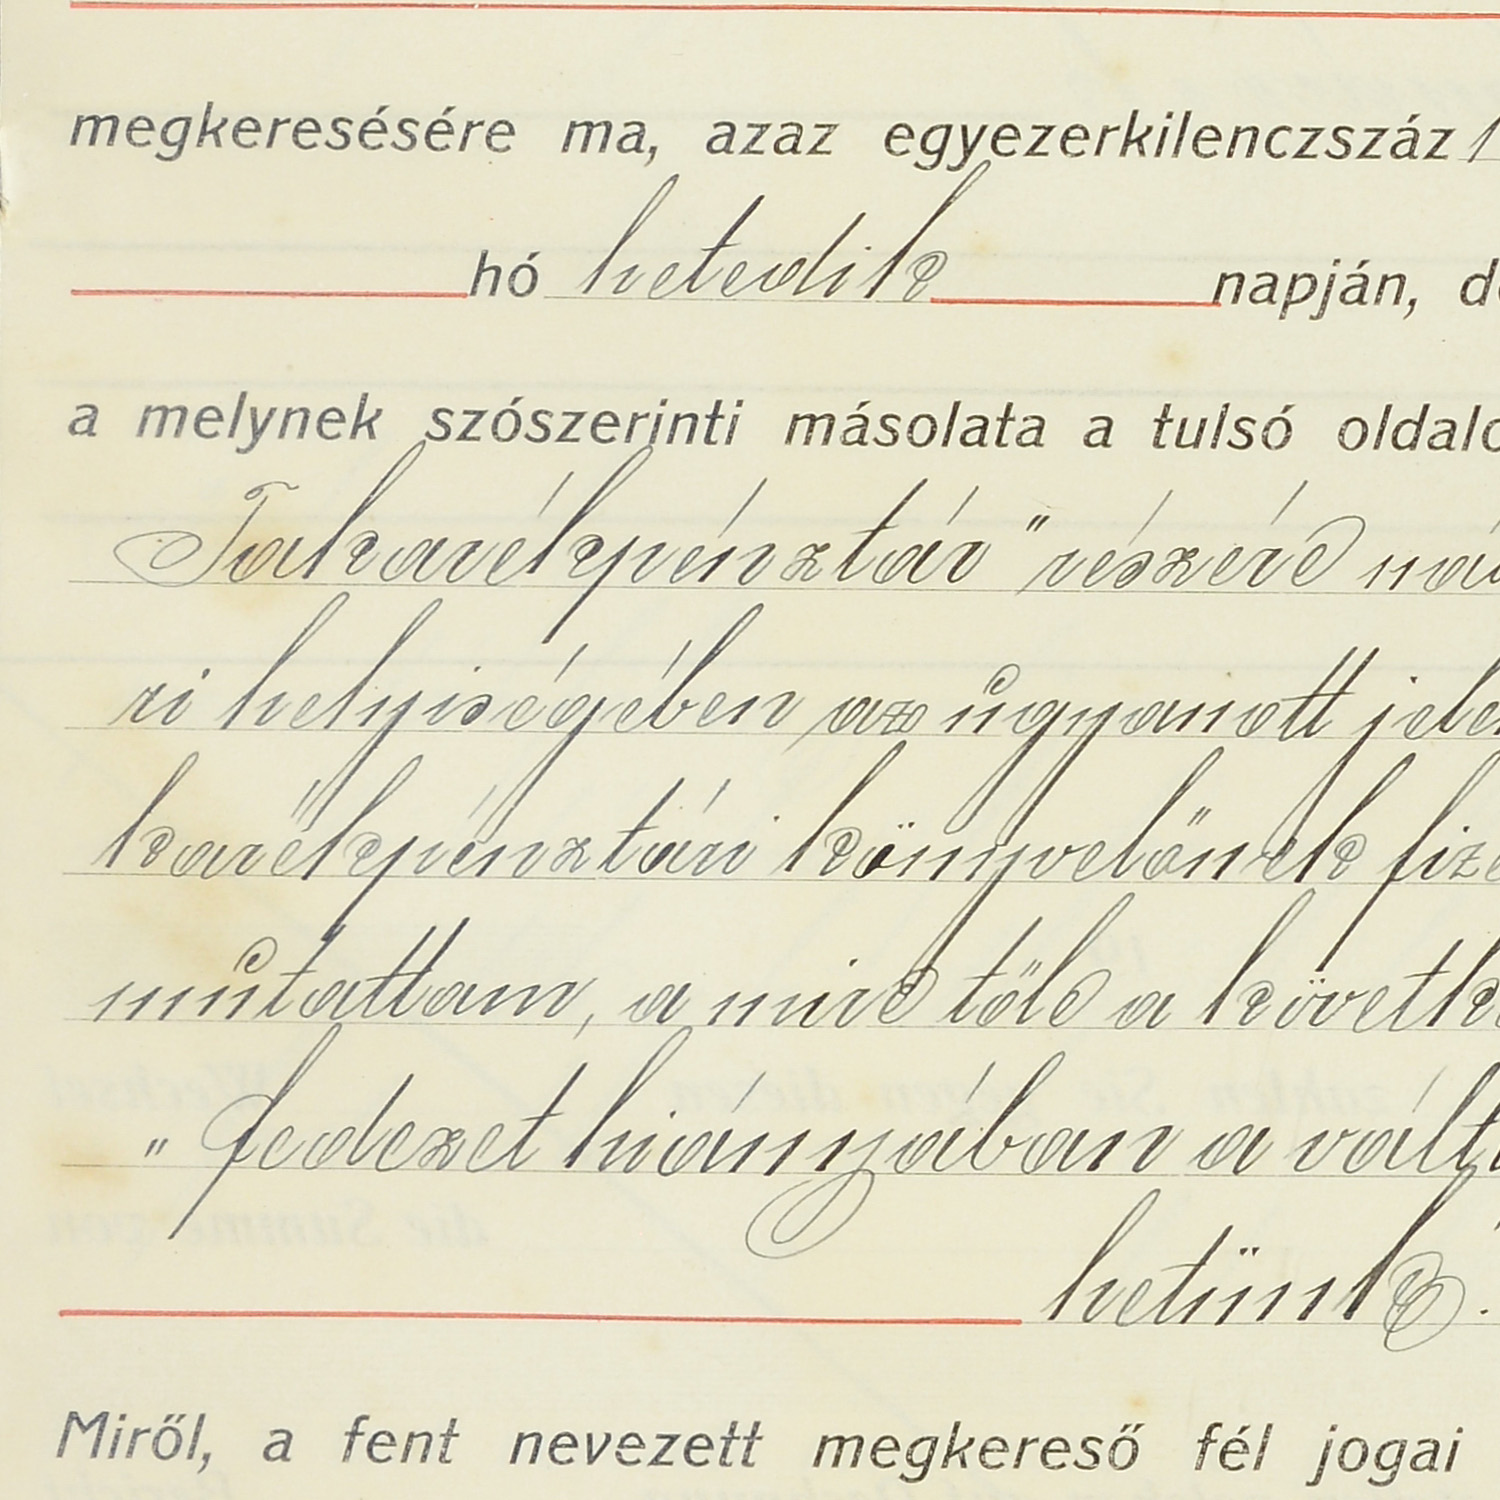 megkeresésére ma, azaz egyezerkilenczszáz 1
hó hetedik napján, de
a melynek szószerinti másolata a tulsó oldalo
Takarékpénztár" részére
ri helyiségében az ugyanott jelen
karékpénztári könyvelőnek fize
mutattam, a mire tőle a követk
„ Fedezet hiányában a vált
hetünk.
Miről, a fent nevezett megkereső fél jogai